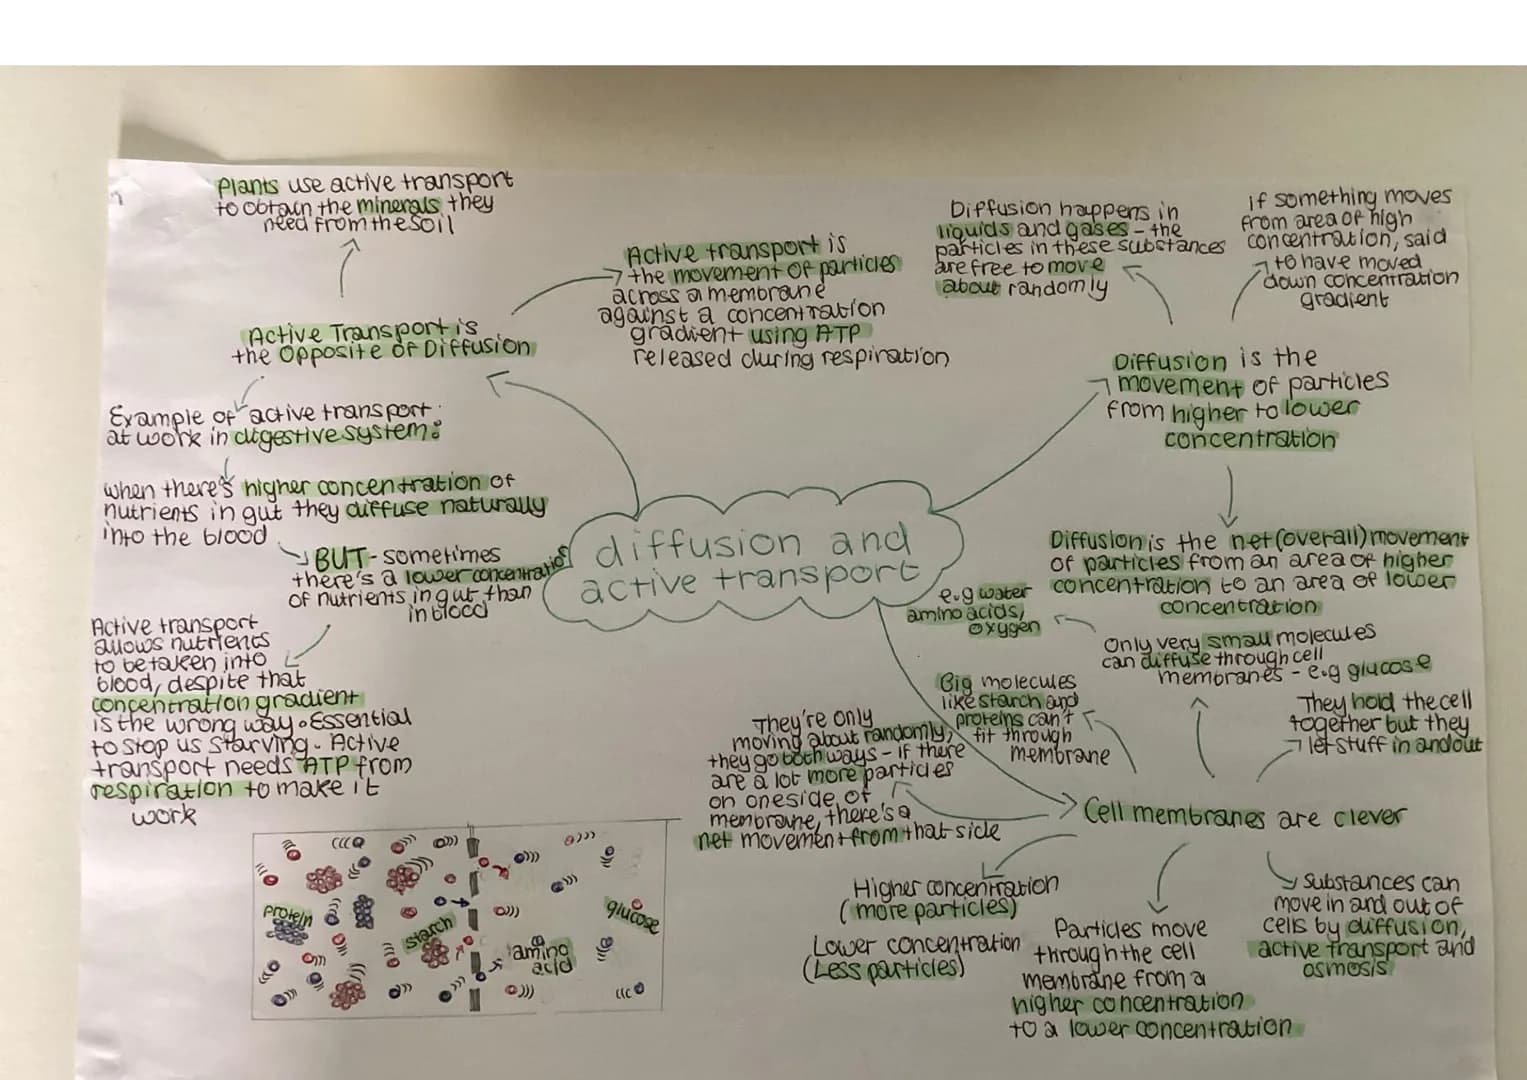 Plants use active transport
to obtain the minerals they
need from the soil
Active Transport is
the opposite of Diffusion
Active transport is
the movement of particles
across a membrane
against a concentration
gradient using ATP
released during respiration
Example of active transport
at work in digestive system:
when there's higher concentration of
nutrients in gut they diffuse naturally
into the blood
BUT - sometimes
there's a lower concentration
of nutrients in gut than
in blood
Active transport
allows nutrients
to be taken into
blood, despite that
concentration gradient
is the wrong way. Essential
to stop us starving. Active
transport needs ATP from
respiration to make it
work
diffusion and
active transport
Diffusion happens in
liquids and gases - the
particles in these substances
are free to move
about randomly
if something moves
from area of high
concentration, said
to have moved
down concentration
gradient
Diffusion is the
movement of particles
from higher to lower
concentration
Diffusion is the net (overall) movement
of particles from an area of higher
concentration to an area of lower
concentration
e.g water
amino acids,
oxygen
Only very small molecules
can diffuse through cell
membranes - e.g glucose
Big molecules
like starch and
proteins can't
fit through
membrane
They hold the cell
together but they
let stuff in and out
They're only
moving about randomly,
they go both ways - if there
are a lot more particles
on one side of
membrane, there's a
net movement from that side
Cell membranes are clever
Higher concentration
(more particles)
Lower concentration
(Less particles)
Particles move
through the cell
membrane from a
higher concentration
to a lower concentration
Substances can
move in and out of
cells by diffusion,
active transport and
osmosis
protein
starch
amino
acid
glucose